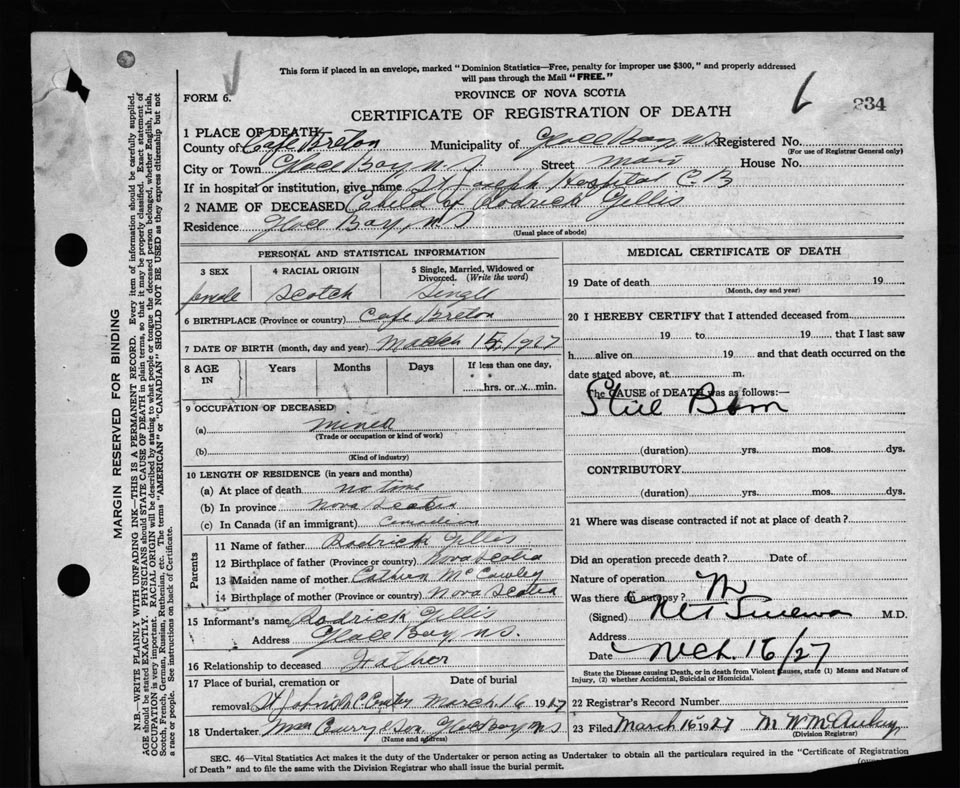 This form if placed in an envelope, marked "Dominion Statistics—Free, penalty for improper use $300," and properly addressed
will pass through the Mail "FREE."
FORM 6.
PROVINCE OF NOVA SCOTIA
234
CERTIFICATE OF REGISTRATION OF DEATH
1 PLACE OF DEATH
County of Cape Breton Municipality of Glace Bay N S Registered No.
(For use of Registrar General only)
City or Town Glace Bay N. S Street Main House No.
If in hospital or institution, give name St Joseph Hospital C. B
2 NAME OF DECEASED Cahild of Rodrick Gillis
Residence Glace Bay, N. S
(Usual place of abode)
PERSONAL AND STATISTICAL INFORMATION
3 SEX 4 RACIAL ORIGIN 5 Single, Married, Widowed or Divorced. (Write the word)
female Scotch Singll
6 BIRTHPLACE (Province or country) Cape Breton
7 DATE OF BIRTH (month, day and year) March 15, 1927
8 AGE IN Years Months Days If less than one day,
hrs. or min.
9 OCCUPATION OF DECEASED
(a)
(Trade or occupation or kind of work)
(b)
(Kind of industry)
10 LENGTH OF RESIDENCE (in years and months)
(a) At place of death no time
(b) In province Nova Scotia
(c) In Canada (if an immigrant) Canadian
Parents
11 Name of father Rodrick Gillis
12 Birthplace of father (Province or country) Nova Scotia
13 Maiden name of mother McCawley
14 Birthplace of mother (Province or country) Nova Scotia
15 Informant's name Rodrick Gillis
Address Glace Bay, N.S.
16 Relationship to deceased Father
17 Place of burial, cremation or Date of burial
removal March. 16 1927
18 Undertaker Curry & Son Glace Bay N S
(Name and address)
MEDICAL CERTIFICATE OF DEATH
19 Date of death 19
(Month, day and year)
20 I HEREBY CERTIFY that I attended deceased from
19 to 19 that I last saw
h alive on 19 and that death occurred on the
date stated above, at m.
The CAUSE of DEATH was as follows:—
Still Born
(duration) yrs. mos. dys.
CONTRIBUTORY
(duration) yrs. mos. dys.
21 Where was disease contracted if not at place of death?
Did an operation precede death? Date of
Nature of operation
Was there an autopsy?
(Signed) M.D.
Address
Date Mch. 16/27
State the Disease causing Death, or in death from Violent Causes, state (1) Means and Nature of
Injury, (2) whether Accidental, Suicidal or Homicidal.
22 Registrar's Record Number
23 Filed March 16 1927
(Division Registrar)
SEC. 46—Vital Statistics Act makes it the duty of the Undertaker or person acting as Undertaker to obtain all the particulars required in the "Certificate of Registration
of Death" and to file the same with the Division Registrar who shall issue the burial permit.
MARGIN RESERVED FOR BINDING
N.B.—WRITE PLAINLY WITH UNFADING INK—THIS IS A PERMANENT RECORD. Every item of information should be carefully supplied.
AGE should be stated EXACTLY. PHYSICIANS should STATE CAUSE OF DEATH in plain terms, so that it may be properly classified. Exact statement of
OCCUPATION is very important. RACIAL ORIGIN will be described by stating to what people or tongue the deceased person belonged, whether English, Irish,
Scotch, French, German, Russian, Ruthenian, etc. The terms "AMERICAN" or "CANADIAN" SHOULD NOT BE USED as they express citizenship but not
a race or people. See instructions on back of Certificate.